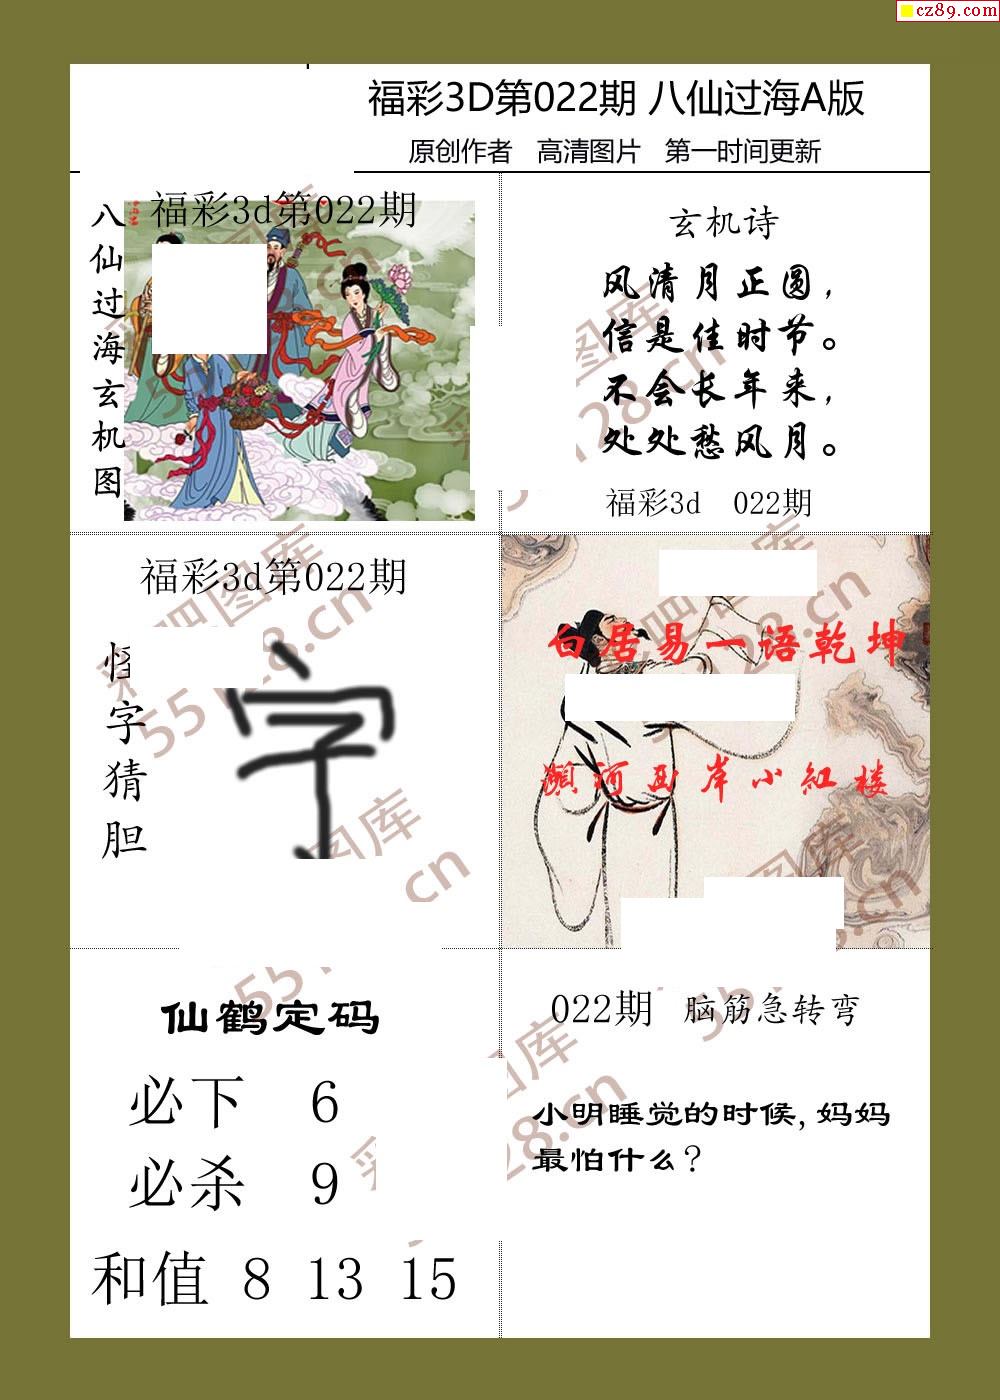 cz89.com
福彩3D第022期 八仙过海A版
原创作者 高清图片 第一时间更新
福彩3d第022期
八仙过海玄机图
玄机诗
风清月正圆，
信是佳时节。
不会长年来，
处处愁风月。
福彩3d 022期
福彩3d第022期
怪字猜胆
白居易一语乾坤
濒河西岸小红楼
仙鹤定码
必下 6
必杀 9
和值 8 13 15
022期 脑筋急转弯
小明睡觉的时候,妈妈
最怕什么?